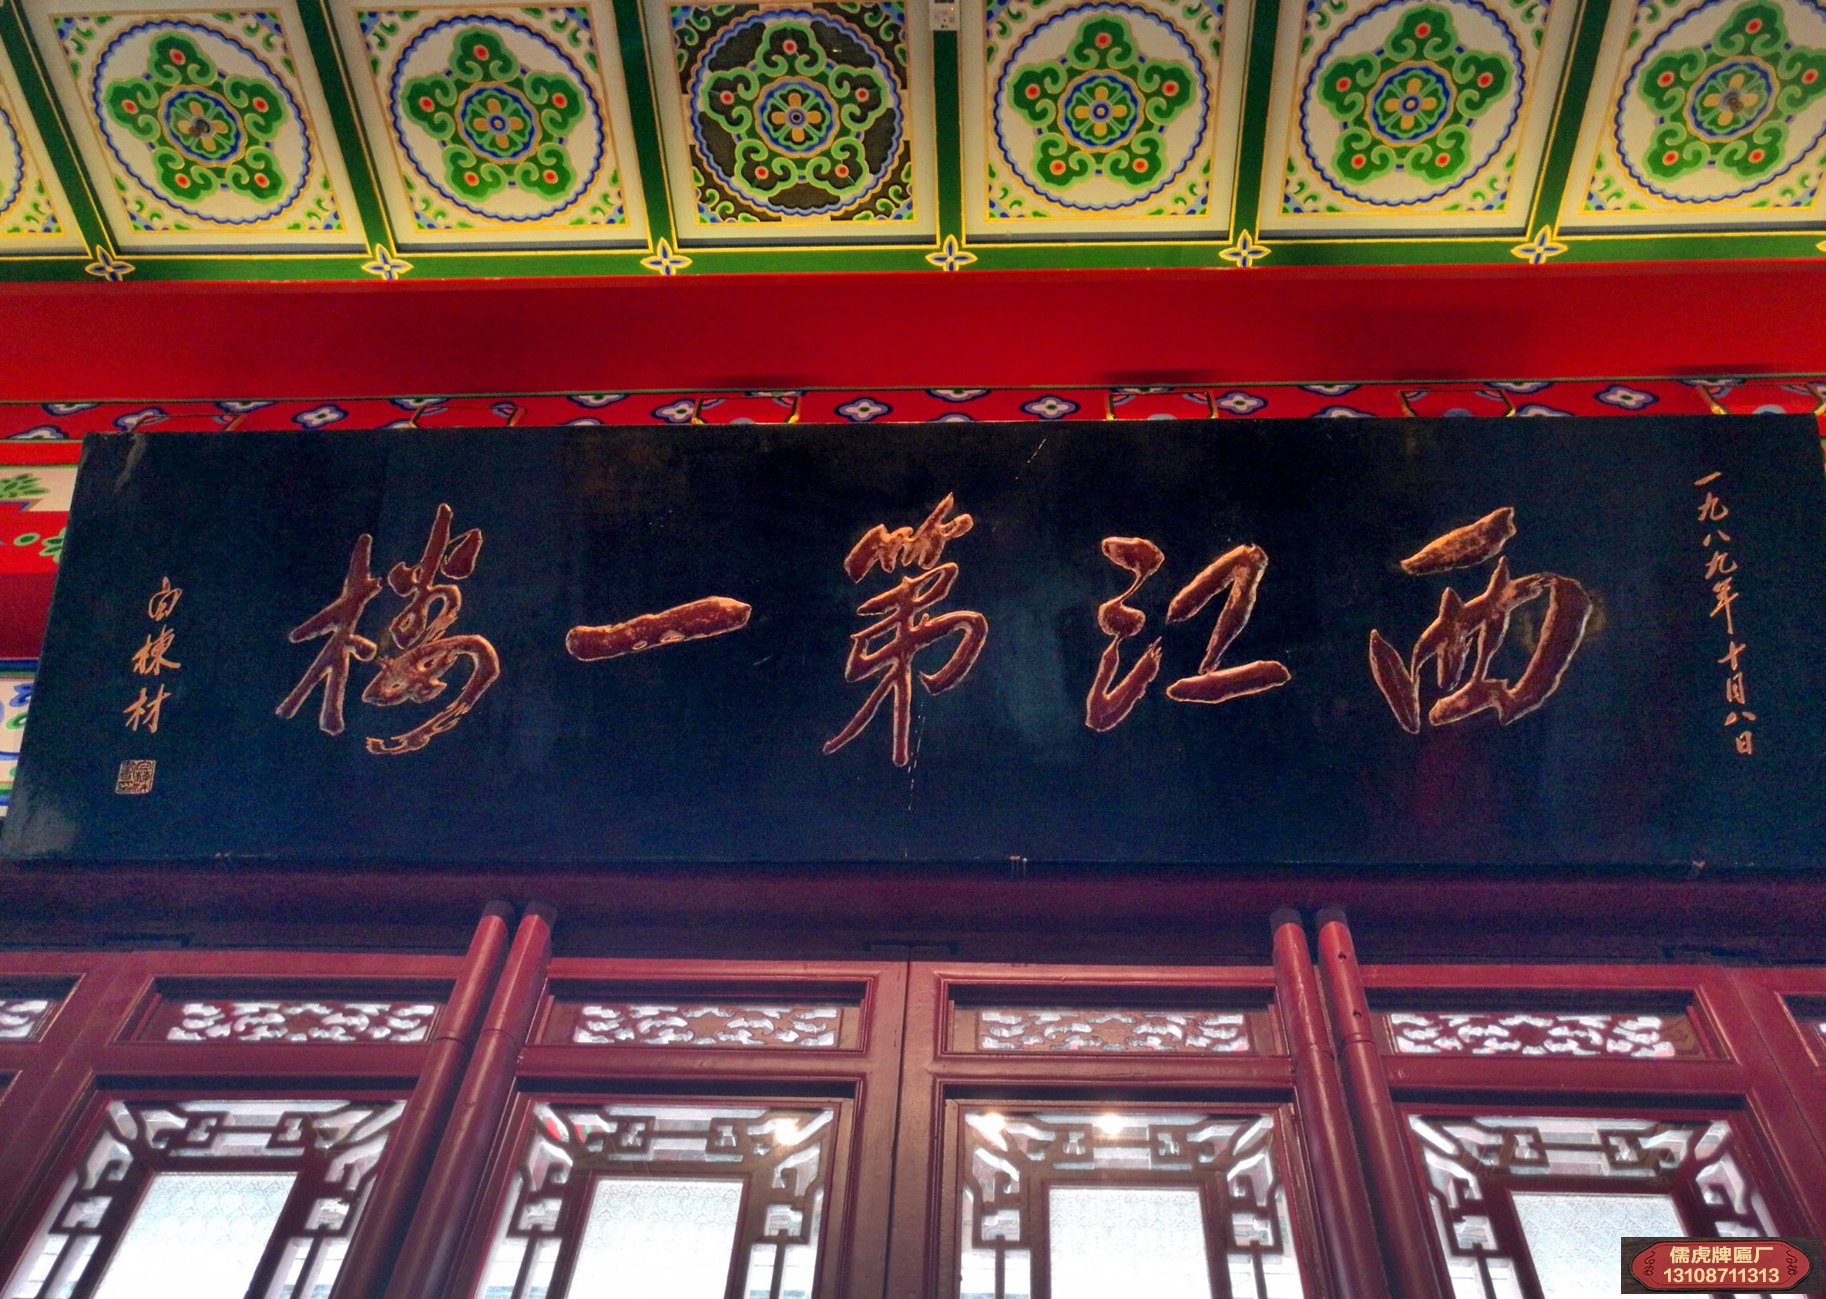 一九八九年十月八日
西江第一楼
白棟材
儒虎牌匾厂
13108711313